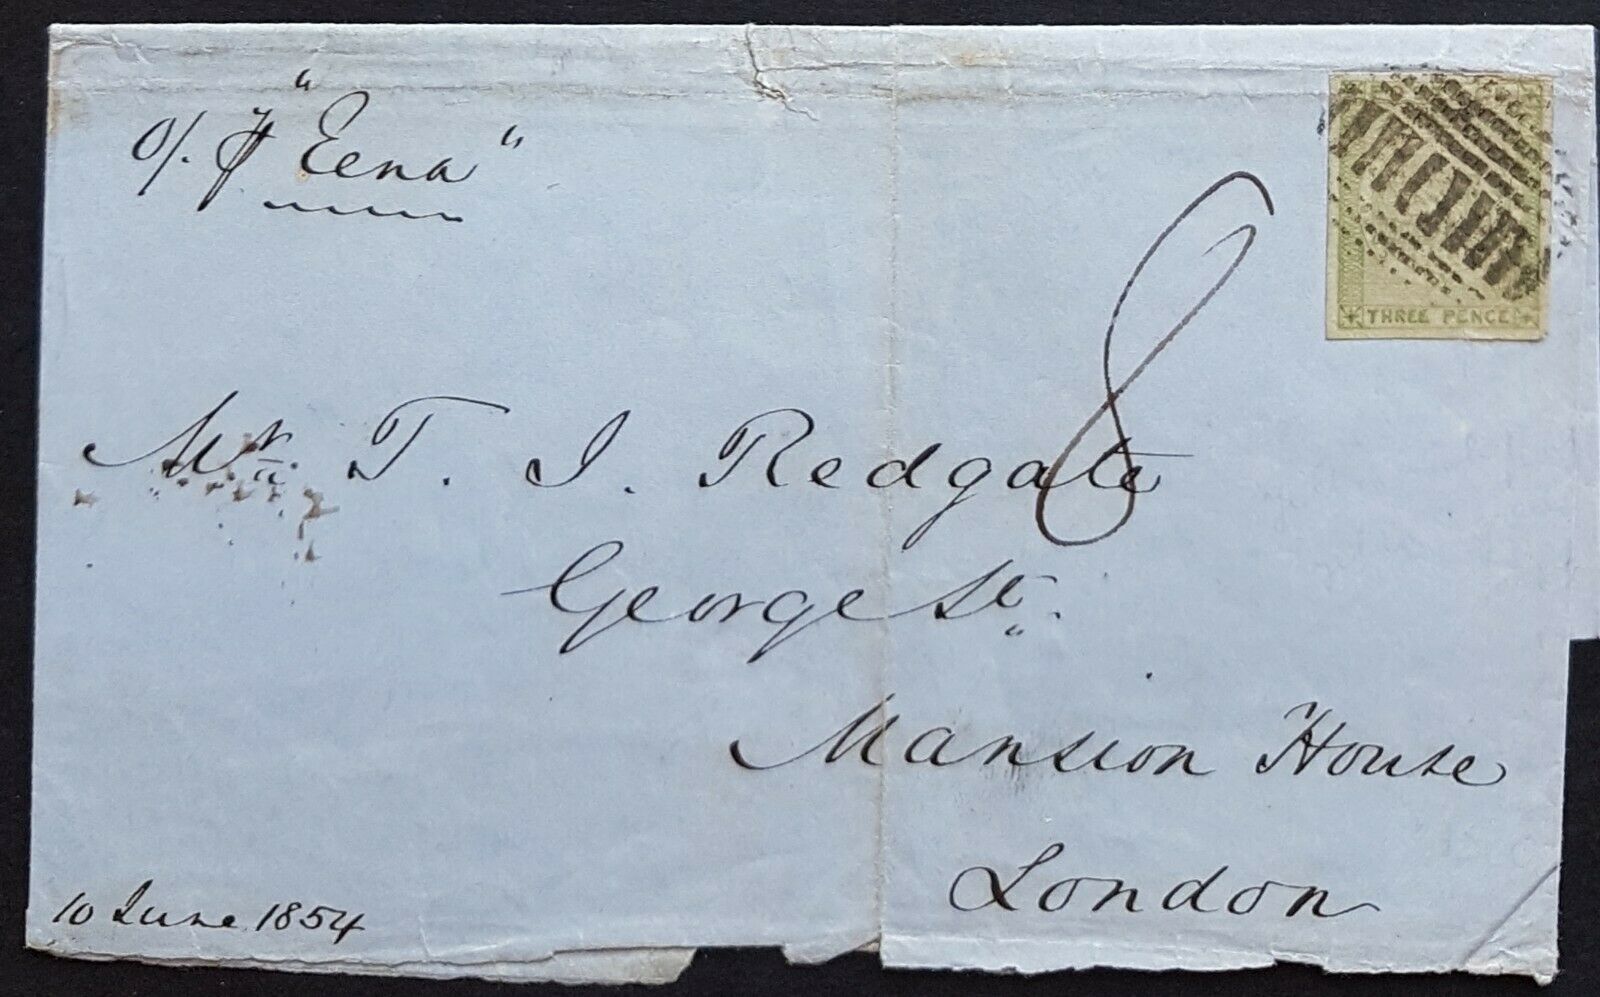 O/. p "Eena"
8
THREE PENCE
Mr. T. J. Redgate
George St.
Mansion House
London
10 June 1854